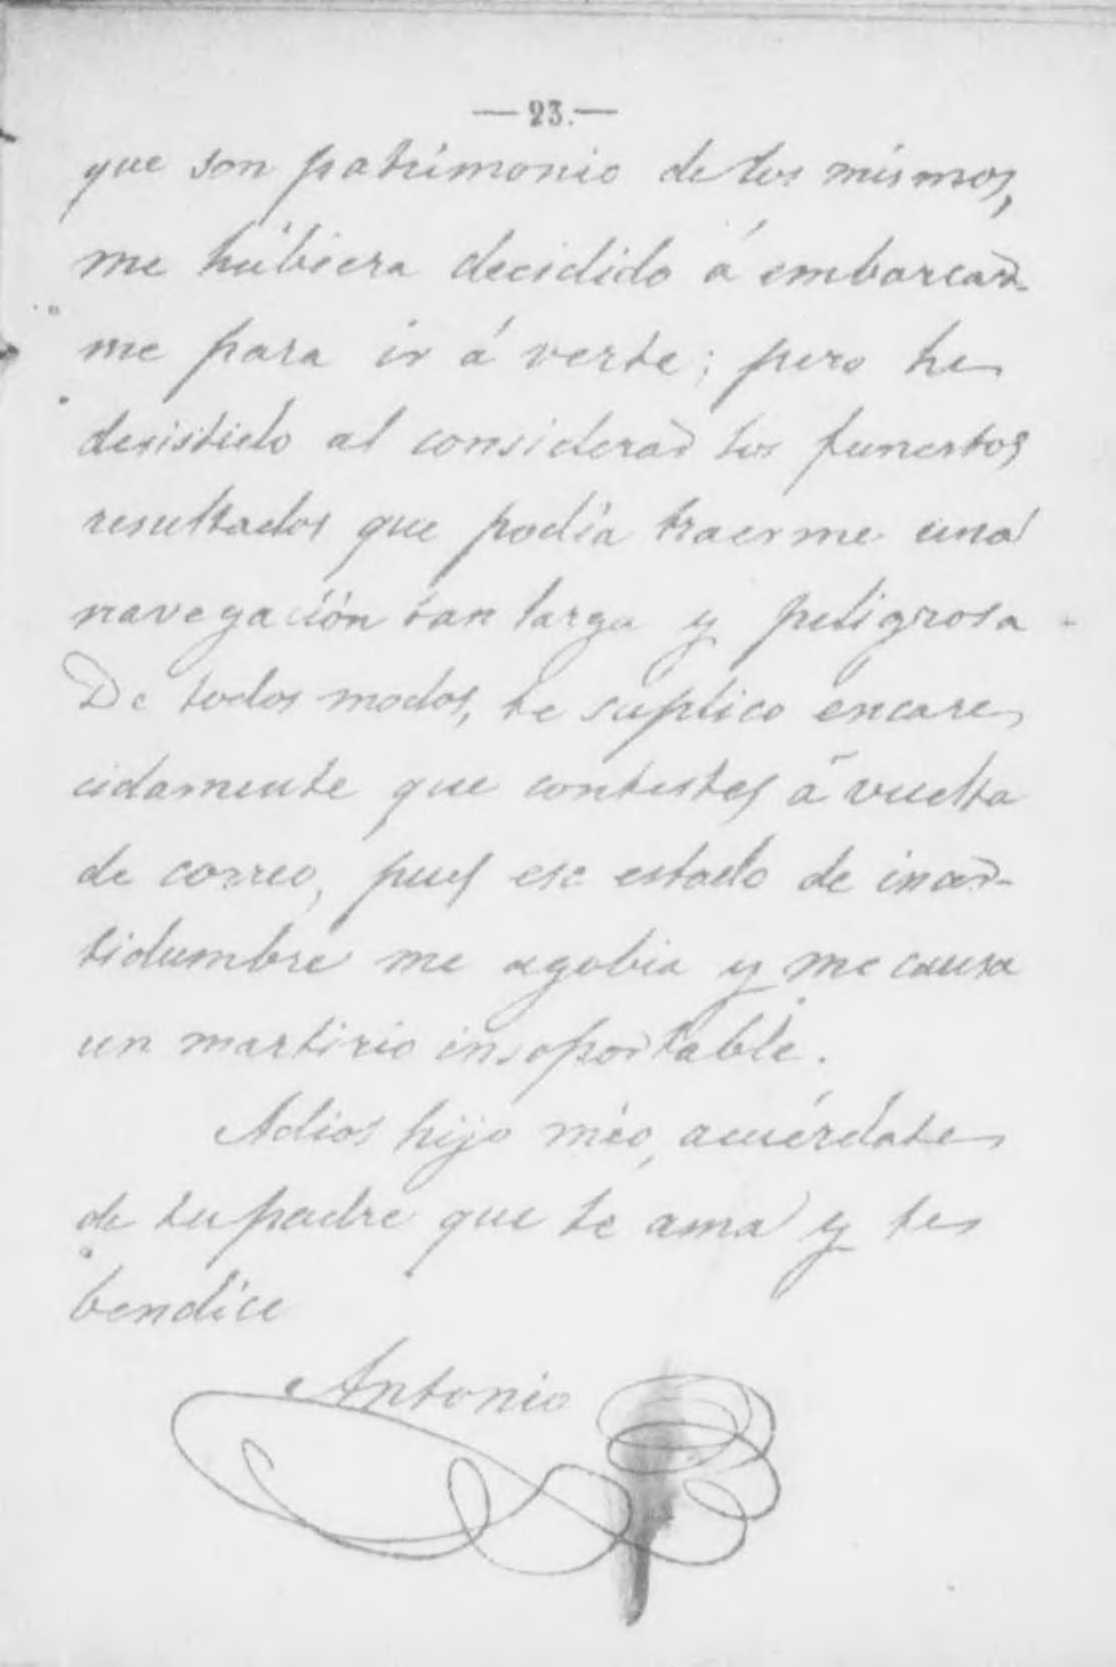 — 23. —
que son patrimonio de los mismos,
me hubiera decidido á embarcar-
me para ir á verte; pero he
desistido al considerar los funestos
resultados que podía traerme una
navegación tan larga y peligrosa.
De todos modos, te suplico encare
cidamente que contestes á vuelta
de correo, pues ese estado de incer-
tidumbre me agobia y me causa
un martirio insoportable.
Adios hijo mío, acuérdate
de tu padre que te ama y te
bendice
Antonio